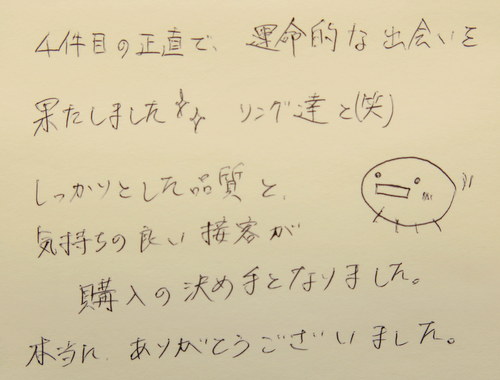 4件目の正直で、運命的な出会いを
果たしました✨ リング達と(笑)
しっかりとした品質と、
気持ちの良い接客が
購入の決め手となりました。
本当に、ありがとうございました。